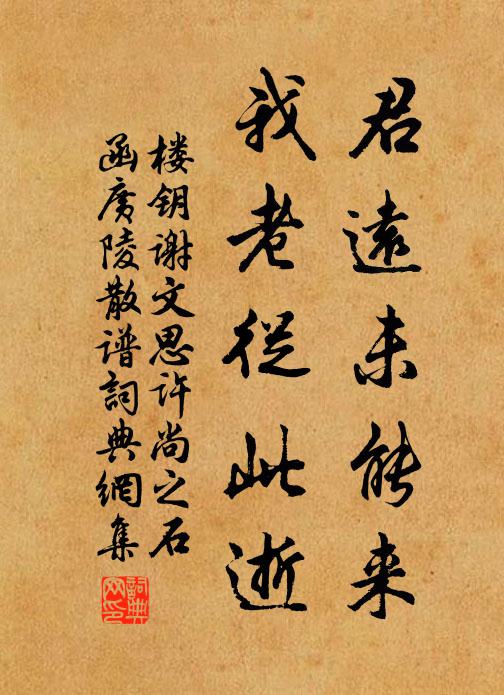 君遠未能来
我老從此逝
楼钥谢文思许尚之石
函廣陵散谱詞典網集
詞典網印